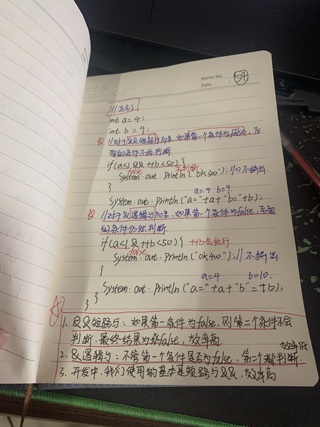 Memo No.
Date
int a=4;
int b=9;
//对于&&短路与而言,如果第一个条件为false,后
面的条件不再判断
if(a<1 && ++b<50) {
false 不判断
System.out.println("ok300"); //不输出
}
a=4 b=9
System.out.println("a="+a+"b="+b);
//对于&逻辑与而言,如果第一个条件为false,后面
的条件仍然判断
if(a<1 & ++b<50) { ++b会执行
false
System.out.println("ok400"); //不输出
}
a=4 b=10.
System.out.println("a="+a+"b="+b);
}
}
1. &&短路与:如果第一条件为false,则第二个条件不会
判断,最终结果为false,效率高
2. &逻辑与:不管第一个条件是否为false,第二个都判断
效率低
3. 开发中,我们使用的基本是短路与&&,效率高